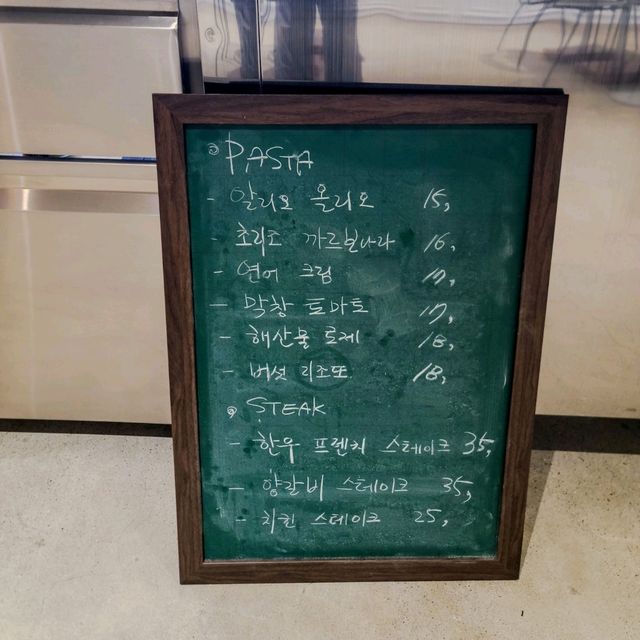 PASTA
- 알리오 올리오 15,
- 초리조 까르보나라 16,
- 연어 크림 17,
- 막창 토마토 17,
- 해산물 로제 18,
- 버섯 리조또 18,
STEAK
- 한우 프렌치 스테이크 35,
- 양갈비 스테이크 35,
- 치킨 스테이크 25,